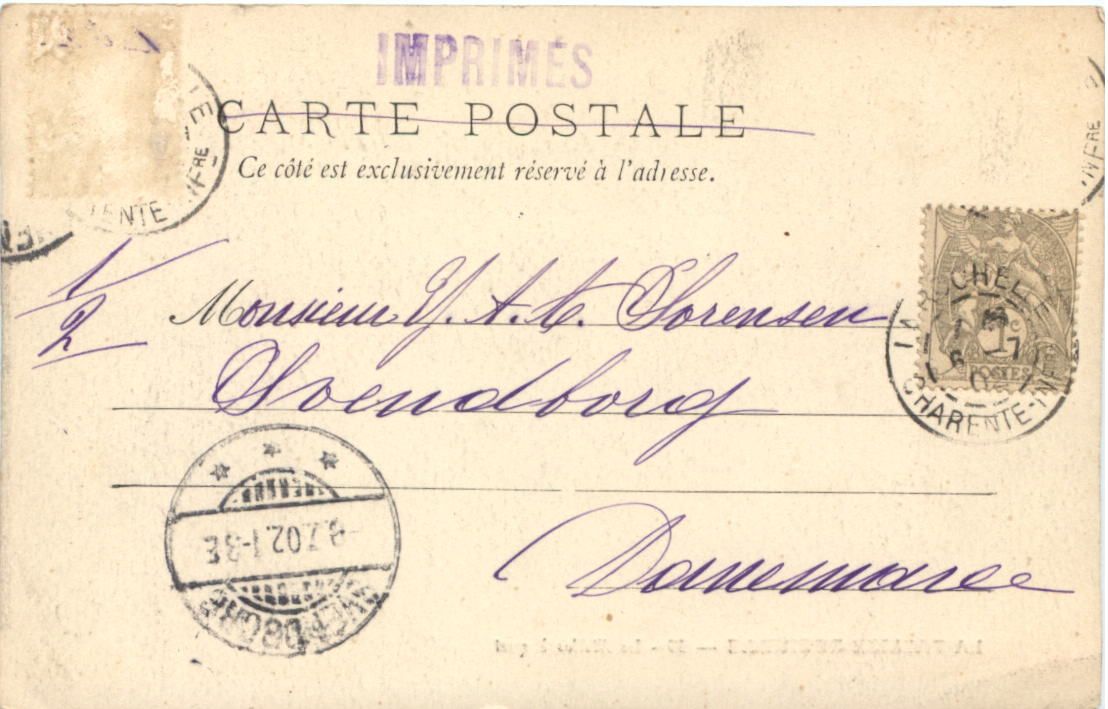 IMPRIMÉS
CARTE POSTALE
Ce côté est exclusivement réservé à l'adresse.
1/2
Monsieur Y. A. C. Sorensen
Svendborg
Danemarc
LA ROCHELLE
CHARENTE-INFRE
1c
POSTES
ENTE
INFRE
INFRE
8.7.02.1-3E
SVENDBORG